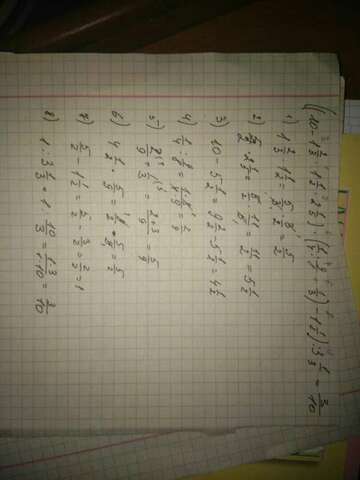 ((10 - 1 2/3 · 1 1/2 · 2 1/5) · (1/4 · 8/9 + 1/3) - 1 1/2) : 3 1/3 = 3/10
1) 1 2/3 · 1 1/2 = 5/3 · 3/2 = 5/2
2) 5/2 · 2 1/5 = 5/2 · 11/5 = 11/2 = 5 1/2
3) 10 - 5 1/2 = 9 2/2 - 5 1/2 = 4 1/2
4) 1/4 · 8/9 = 1·8/4·9 = 2/9
5) 2/9 + 1/3 = 2+3/9 = 5/9
6) 4 1/2 · 5/9 = 9/2 · 5/9 = 5/2
7) 5/2 - 1 1/2 = 5/2 - 3/2 = 2/2 = 1
8) 1 : 3 1/3 = 1 : 10/3 = 1·3/10 = 3/10